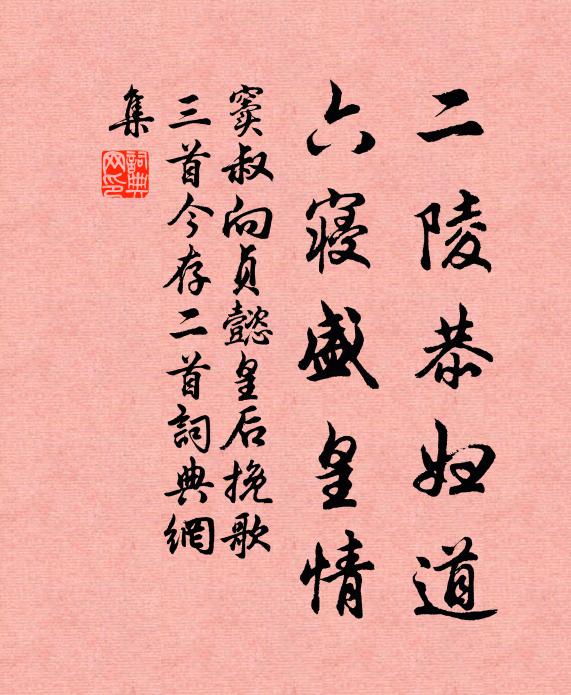 二陵恭妇道
六寝盛皇情
窦叔向贞懿皇后挽歌
三首今存二首詞典網
集
詞典网印